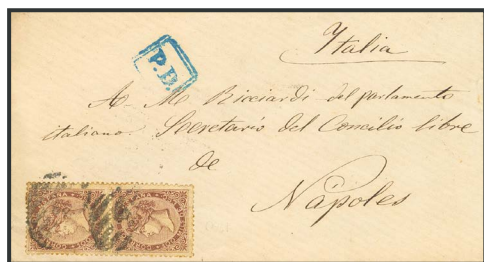 Italia
P.D.
A M Ricciardi del parlamento
italiano. Secretario del Concilio libre
de
Napoles